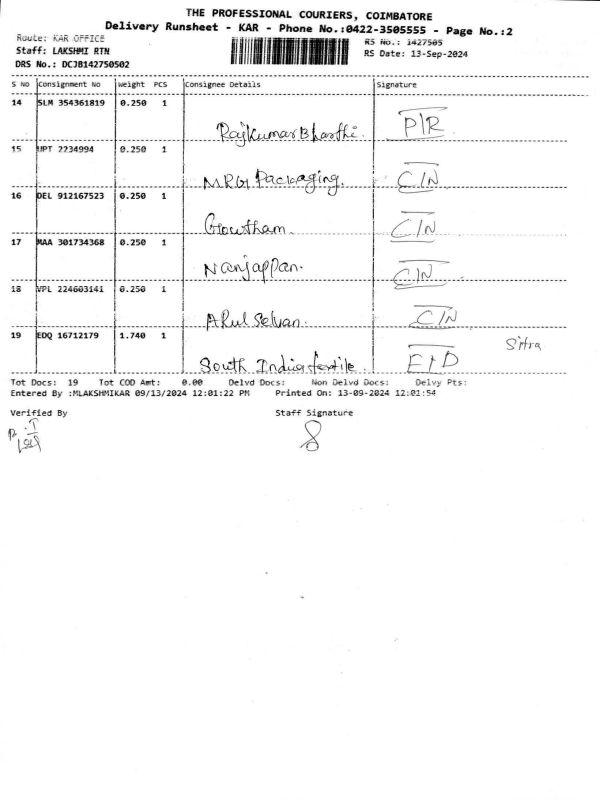 THE PROFESSIONAL COURIERS, COIMBATORE
Delivery Runsheet - KAR - Phone No.:0422-3505555 - Page No.:2
Route: KAR OFFICE
RS No.: 1427505
Staff: LAKSHMI RTN
RS Date: 13-Sep-2024
DRS No.: DCJB142750502
S No Consignment No Weight PCS Consignee Details Signature
14 SLM 354361819 0.250 1
Rajkumar Bharthi. P/R
15 UPT 2234994 0.250 1
MRG Packaging. C/N
16 DEL 912167523 0.250 1
Gowtham. C/N
17 MAA 301734368 0.250 1
Nanjappan. C/N
18 VPL 224603141 0.250 1
ARul Selvan. C/N
19 EDQ 16712179 1.740 1 Sitra
South India textile E+D
Tot Docs: 19 Tot COD Amt: 0.00 Delvd Docs: Non Delvd Docs: Delvy Pts:
Entered By :MLAKSHMIKAR 09/13/2024 12:01:22 PM Printed On: 13-09-2024 12:01:54
Verified By Staff Signature